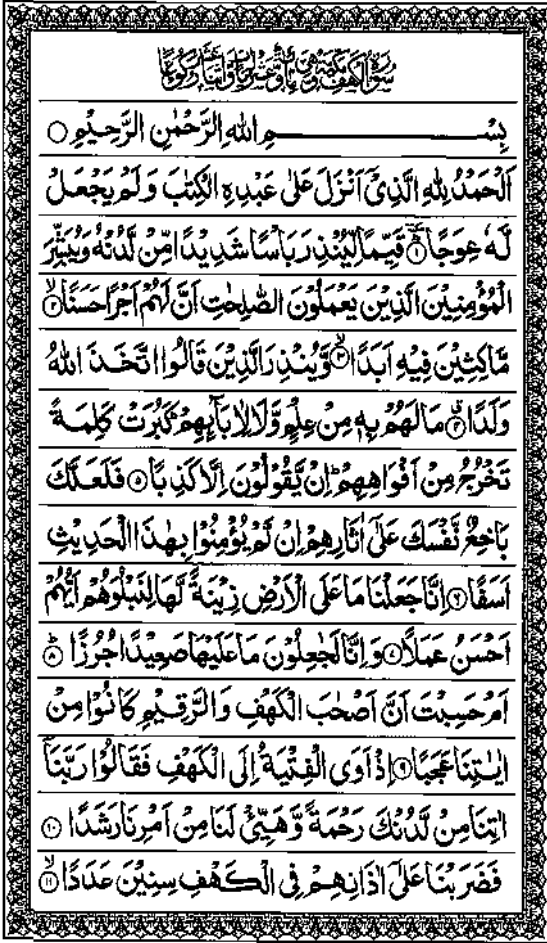 سُوْرَةُ الْكَهْفِ مَكِّيَّةٌ وَّهِيَ مِائَةٌ وَّعَشْرُ اٰيَاتٍ وَّاثْنَا عَشَرَ رُكُوْعًا
بِسْمِ اللّٰهِ الرَّحْمٰنِ الرَّحِيْمِ ○
اَلْحَمْدُ لِلّٰهِ الَّذِيْٓ اَنْزَلَ عَلٰى عَبْدِهِ الْكِتٰبَ وَلَمْ يَجْعَلْ
لَّهٗ عِوَجًا ۜ ۱ قَيِّمًا لِّيُنْذِرَ بَاْسًا شَدِيْدًا مِّنْ لَّدُنْهُ وَيُبَشِّرَ
الْمُؤْمِنِيْنَ الَّذِيْنَ يَعْمَلُوْنَ الصّٰلِحٰتِ اَنَّ لَهُمْ اَجْرًا حَسَنًا ۙ ۲
مَّاكِثِيْنَ فِيْهِ اَبَدًا ۙ ۳ وَّيُنْذِرَ الَّذِيْنَ قَالُوا اتَّخَذَ اللّٰهُ
وَلَدًا ۴ مَا لَهُمْ بِهٖ مِنْ عِلْمٍ وَّلَا لِاٰبَآئِهِمْ ؕ كَبُرَتْ كَلِمَةً
تَخْرُجُ مِنْ اَفْوَاهِهِمْ ؕ اِنْ يَّقُوْلُوْنَ اِلَّا كَذِبًا ۵ فَلَعَلَّكَ
بَاخِعٌ نَّفْسَكَ عَلٰٓى اٰثَارِهِمْ اِنْ لَّمْ يُؤْمِنُوْا بِهٰذَا الْحَدِيْثِ
اَسَفًا ۶ اِنَّا جَعَلْنَا مَا عَلَى الْاَرْضِ زِيْنَةً لَّهَا لِنَبْلُوَهُمْ اَيُّهُمْ
اَحْسَنُ عَمَلًا ۷ وَاِنَّا لَجٰعِلُوْنَ مَا عَلَيْهَا صَعِيْدًا جُرُزًا ؕ ۸
اَمْ حَسِبْتَ اَنَّ اَصْحٰبَ الْكَهْفِ وَالرَّقِيْمِ كَانُوْا مِنْ
اٰيٰتِنَا عَجَبًا ۹ اِذْ اَوَى الْفِتْيَةُ اِلَى الْكَهْفِ فَقَالُوْا رَبَّنَآ
اٰتِنَا مِنْ لَّدُنْكَ رَحْمَةً وَّهَيِّئْ لَنَا مِنْ اَمْرِنَا رَشَدًا ۱۰
فَضَرَبْنَا عَلٰٓى اٰذَانِهِمْ فِي الْكَهْفِ سِنِيْنَ عَدَدًا ۙ ۱۱